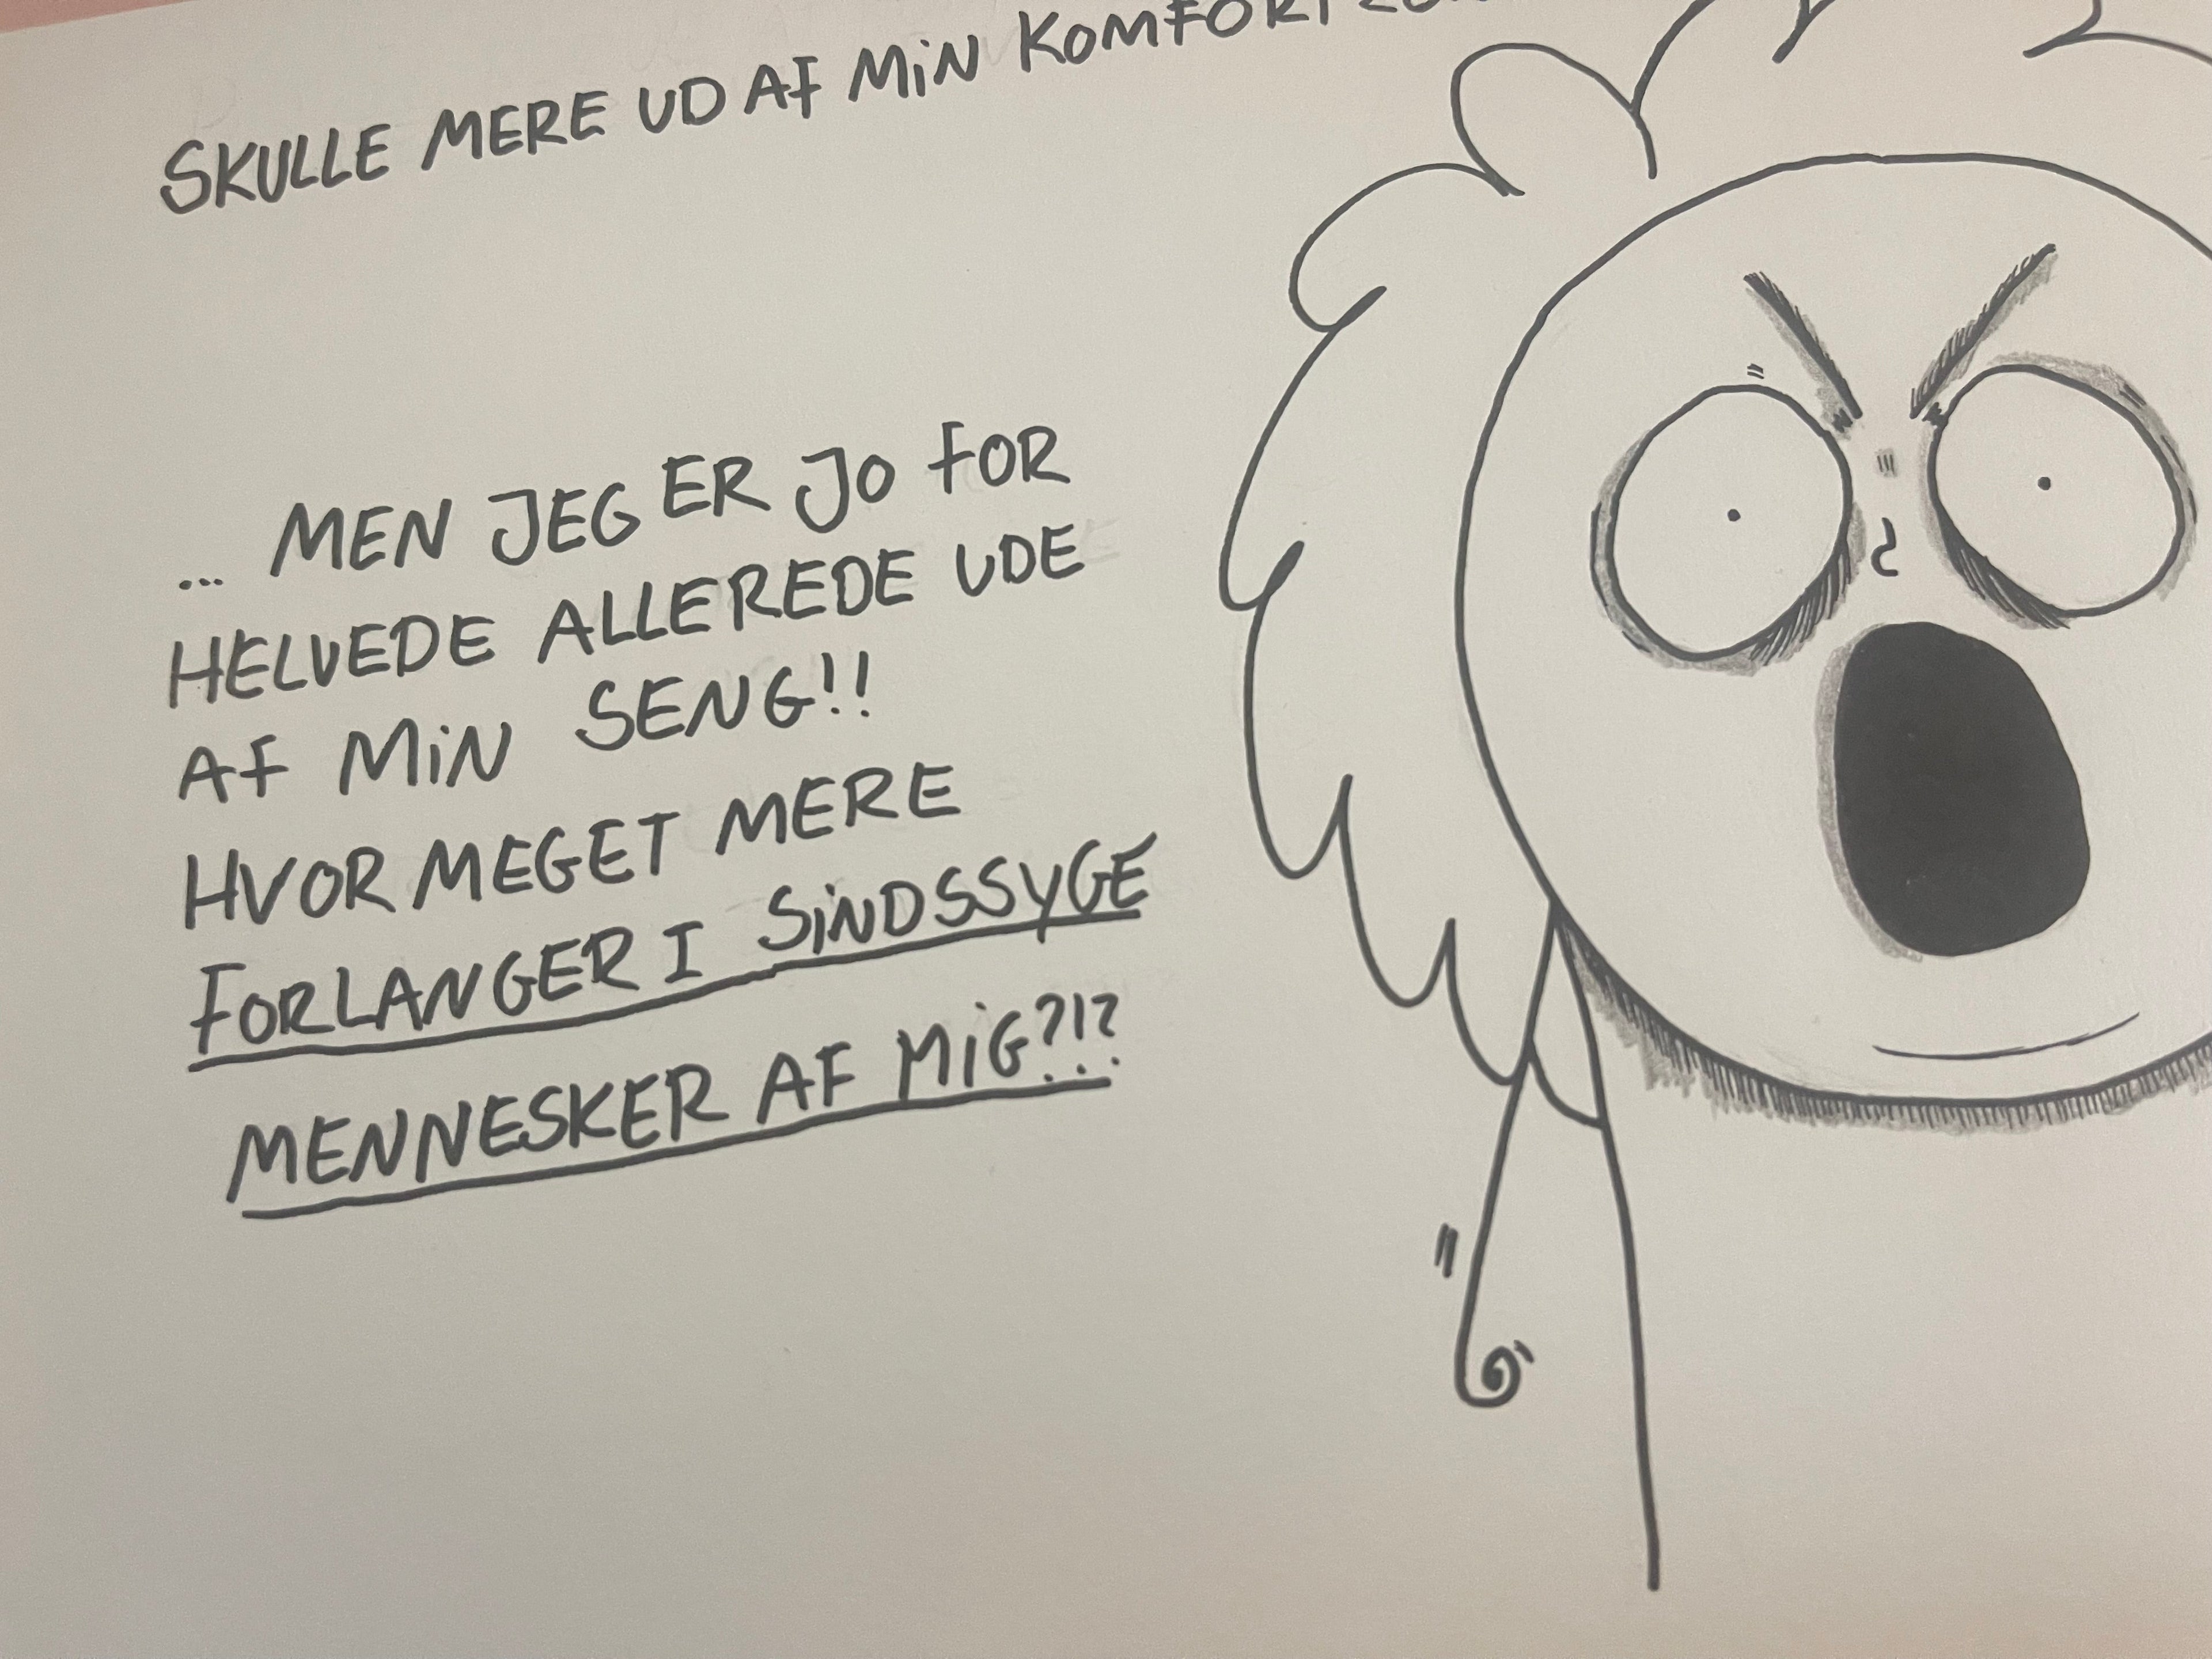 SKULLE MERE UD AF MIN
... MEN JEG ER JO FOR
HELVEDE ALLEREDE UDE
AF MIN SENG!!
HVOR MEGET MERE
FORLANGER I SINDSSYGE
MENNESKER AF MIG?!?